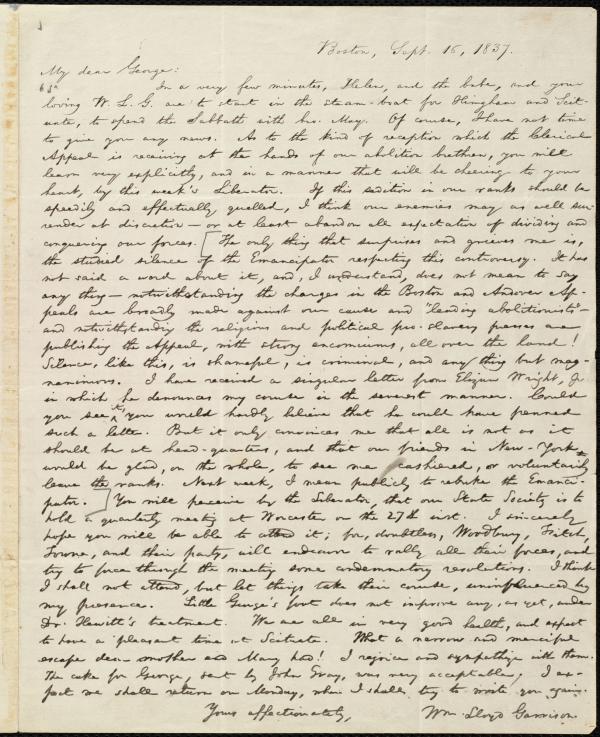 Boston, Sept. 16, 1837.
My dear George:
In a very few minutes, Helen, and the babe, and your
loving W. L. G. are to start in the steam-boat for Hingham and Scit-
uate, to spend the Sabbath with bro. May. Of course, I have not time
to give you any news. As to the kind of reception which the Clerical
Appeal is receiving at the hands of our abolition brethren, you will
learn very explicitly, and in a manner that will be cheering to your
heart, by this week's Liberator. If this sedition in our ranks should be
speedily and effectually quelled, I think our enemies may as well sur-
render at discretion — or at least abandon all expectation of dividing and
conquering our forces. [The only thing that surprises and grieves me is,
the studied silence of the Emancipator respecting this controversy. It has
not said a word about it, and, I understand, does not mean to say
any thing — notwithstanding the charges in the Boston and Andover Ap-
peals are broadly made against our cause and "leading abolitionists" —
and notwithstanding the religious and political pro-slavery presses are
publishing the Appeal, with strong encomiums, all over the land!
Silence, like this, is shameful, is criminal, and any thing but mag-
nanimous. I have received a singular letter from Elizur Wright, Jr
in which he denounces my course in the severest manner. Could
you see it, you would hardly believe that he could have penned
such a letter. But it only convinces me that all is not as it
should be at head-quarters, and that our friends in New-York
would be glad, on the whole, to see me cashiered, or voluntarily
leave the ranks. Next week, I mean publicly to rebuke the Emanci-
pator.] You will perceive by the Liberator, that our State Society is to
hold a quarterly meeting at Worcester on the 27th inst. I sincerely
hope you will be able to attend it; for, doubtless, Woodbury, Fitch,
Towne, and their party, will endeavor to rally all their forces, and
try to force through the meeting some condemnatory resolutions. I think
I shall not attend, but let things take their course, uninfluenced by
my presence. Little George's foot does not improve any, as yet, under
Dr. Hewitt's treatment. We are all in very good health, and expect
to have a pleasant time at Scituate. What a narrow and merciful
escape dear mother and Mary had! I rejoice and sympathize with them.
The cake for George, sent by John Gray, was very acceptable. I ex-
pect we shall return on Monday, when I shall try to write you again.
Yours affectionately,
Wm. Lloyd Garrison.